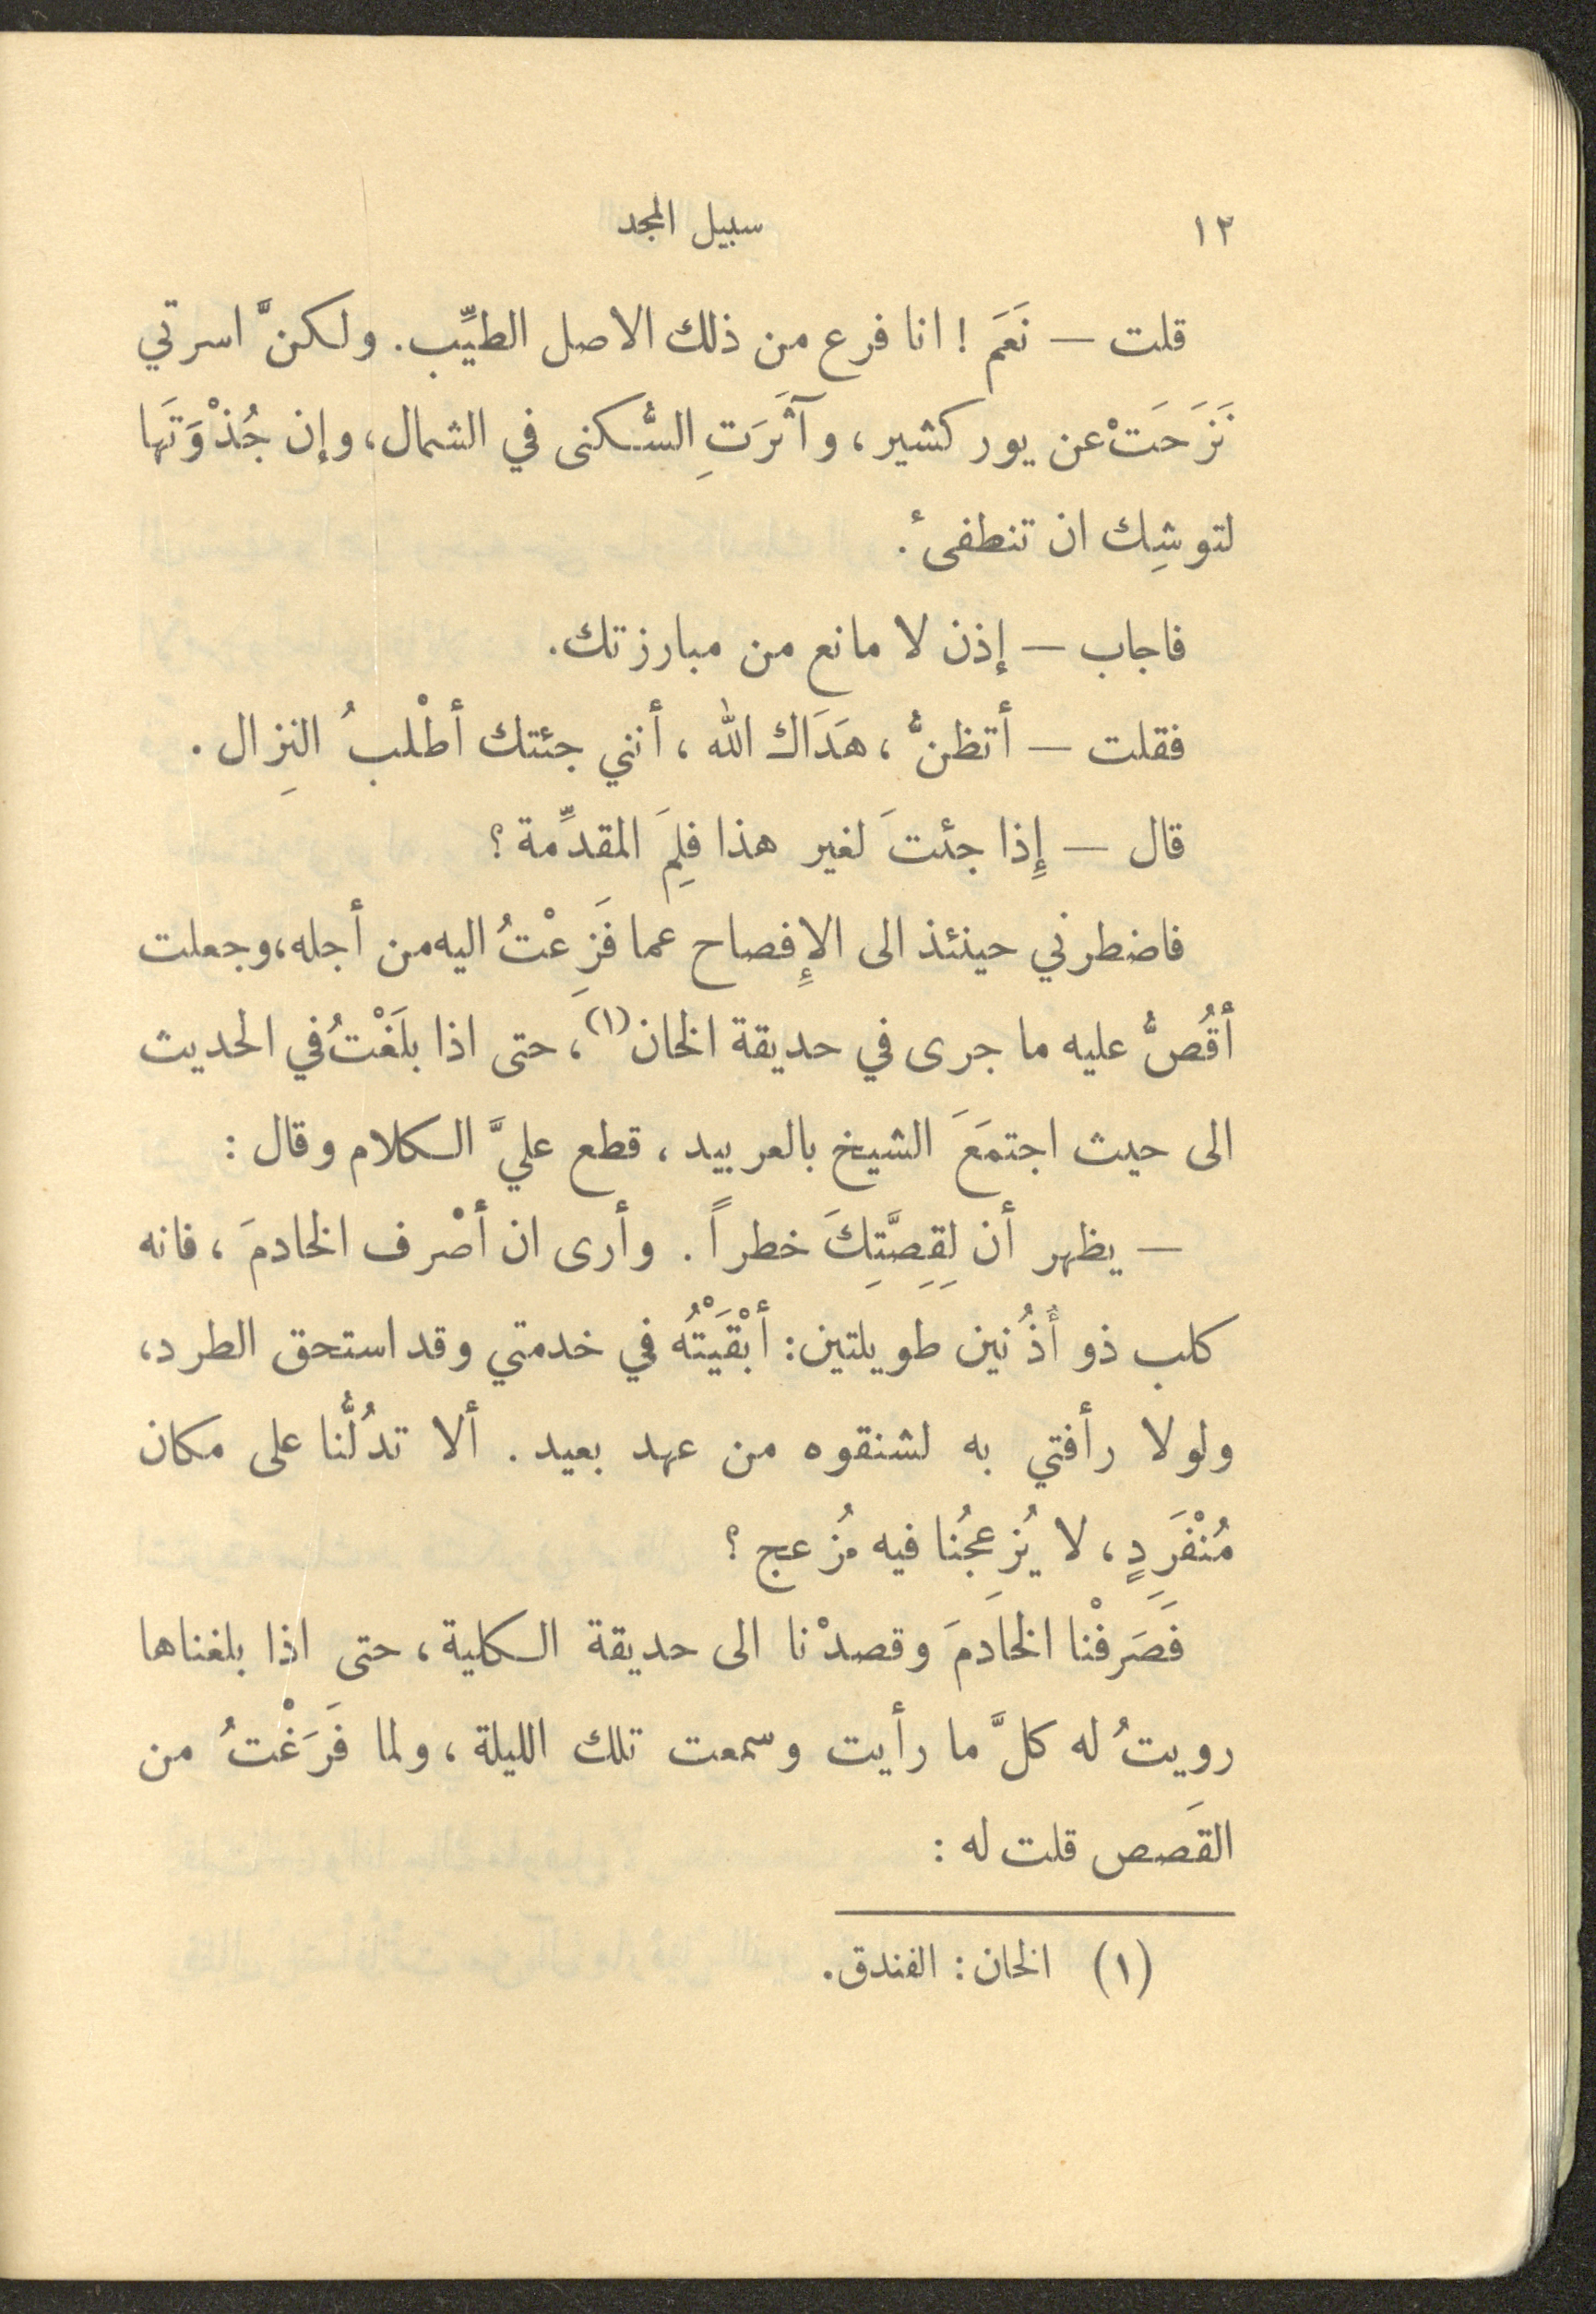 ١٢
سبيل المجد
قلت — نَعَم ! انا فرع من ذلك الاصل الطيِّب. ولكنَّ اسرتي
نَزَحَتْ عن يوركشير، وآثَرَتِ السُّكنى في الشمال، وإن جُذْوَتَها
لتوشِك ان تنطفئ.
فاجاب — إذن لا مانع من مبارزتك.
فقلت — أتظنُّ، هَدَاك الله، أنني جئتك أطْلبُ النِزال.
قال — إِذا جئتَ لغير هذا فلِمَ المقدِّمة ؟
فاضطرني حينئذ الى الإِفصاح عما فَزِعْتُ اليه من أجله، وجعلت
أقُصُّ عليه ما جرى في حديقة الخان(١)، حتى اذا بلَغْتُ في الحديث
الى حيث اجتمَعَ الشيخ بالعربيد، قطع عليَّ الكلام وقال :
— يظهر أن لِقِصَّتِكَ خطراً. وأرى ان أصْرف الخادمَ، فانه
كلب ذو أُذُنين طويلتين: أبْقَيْتُه في خدمتي وقد استحق الطرد،
ولولا رأفتي به لشنقوه من عهد بعيد. ألا تدُلُّنا على مكان
مُنْفَرَدٍ، لا يُزعِجُنا فيه مُزعج ؟
فَصَرفْنا الخادمَ وقصدْنا الى حديقة الكلية، حتى اذا بلغناها
رويتُ له كلَّ ما رأيت وسمعت تلك الليلة، ولما فَرَغْتُ من
القَصص قلت له :
(١) الخان: الفندق.